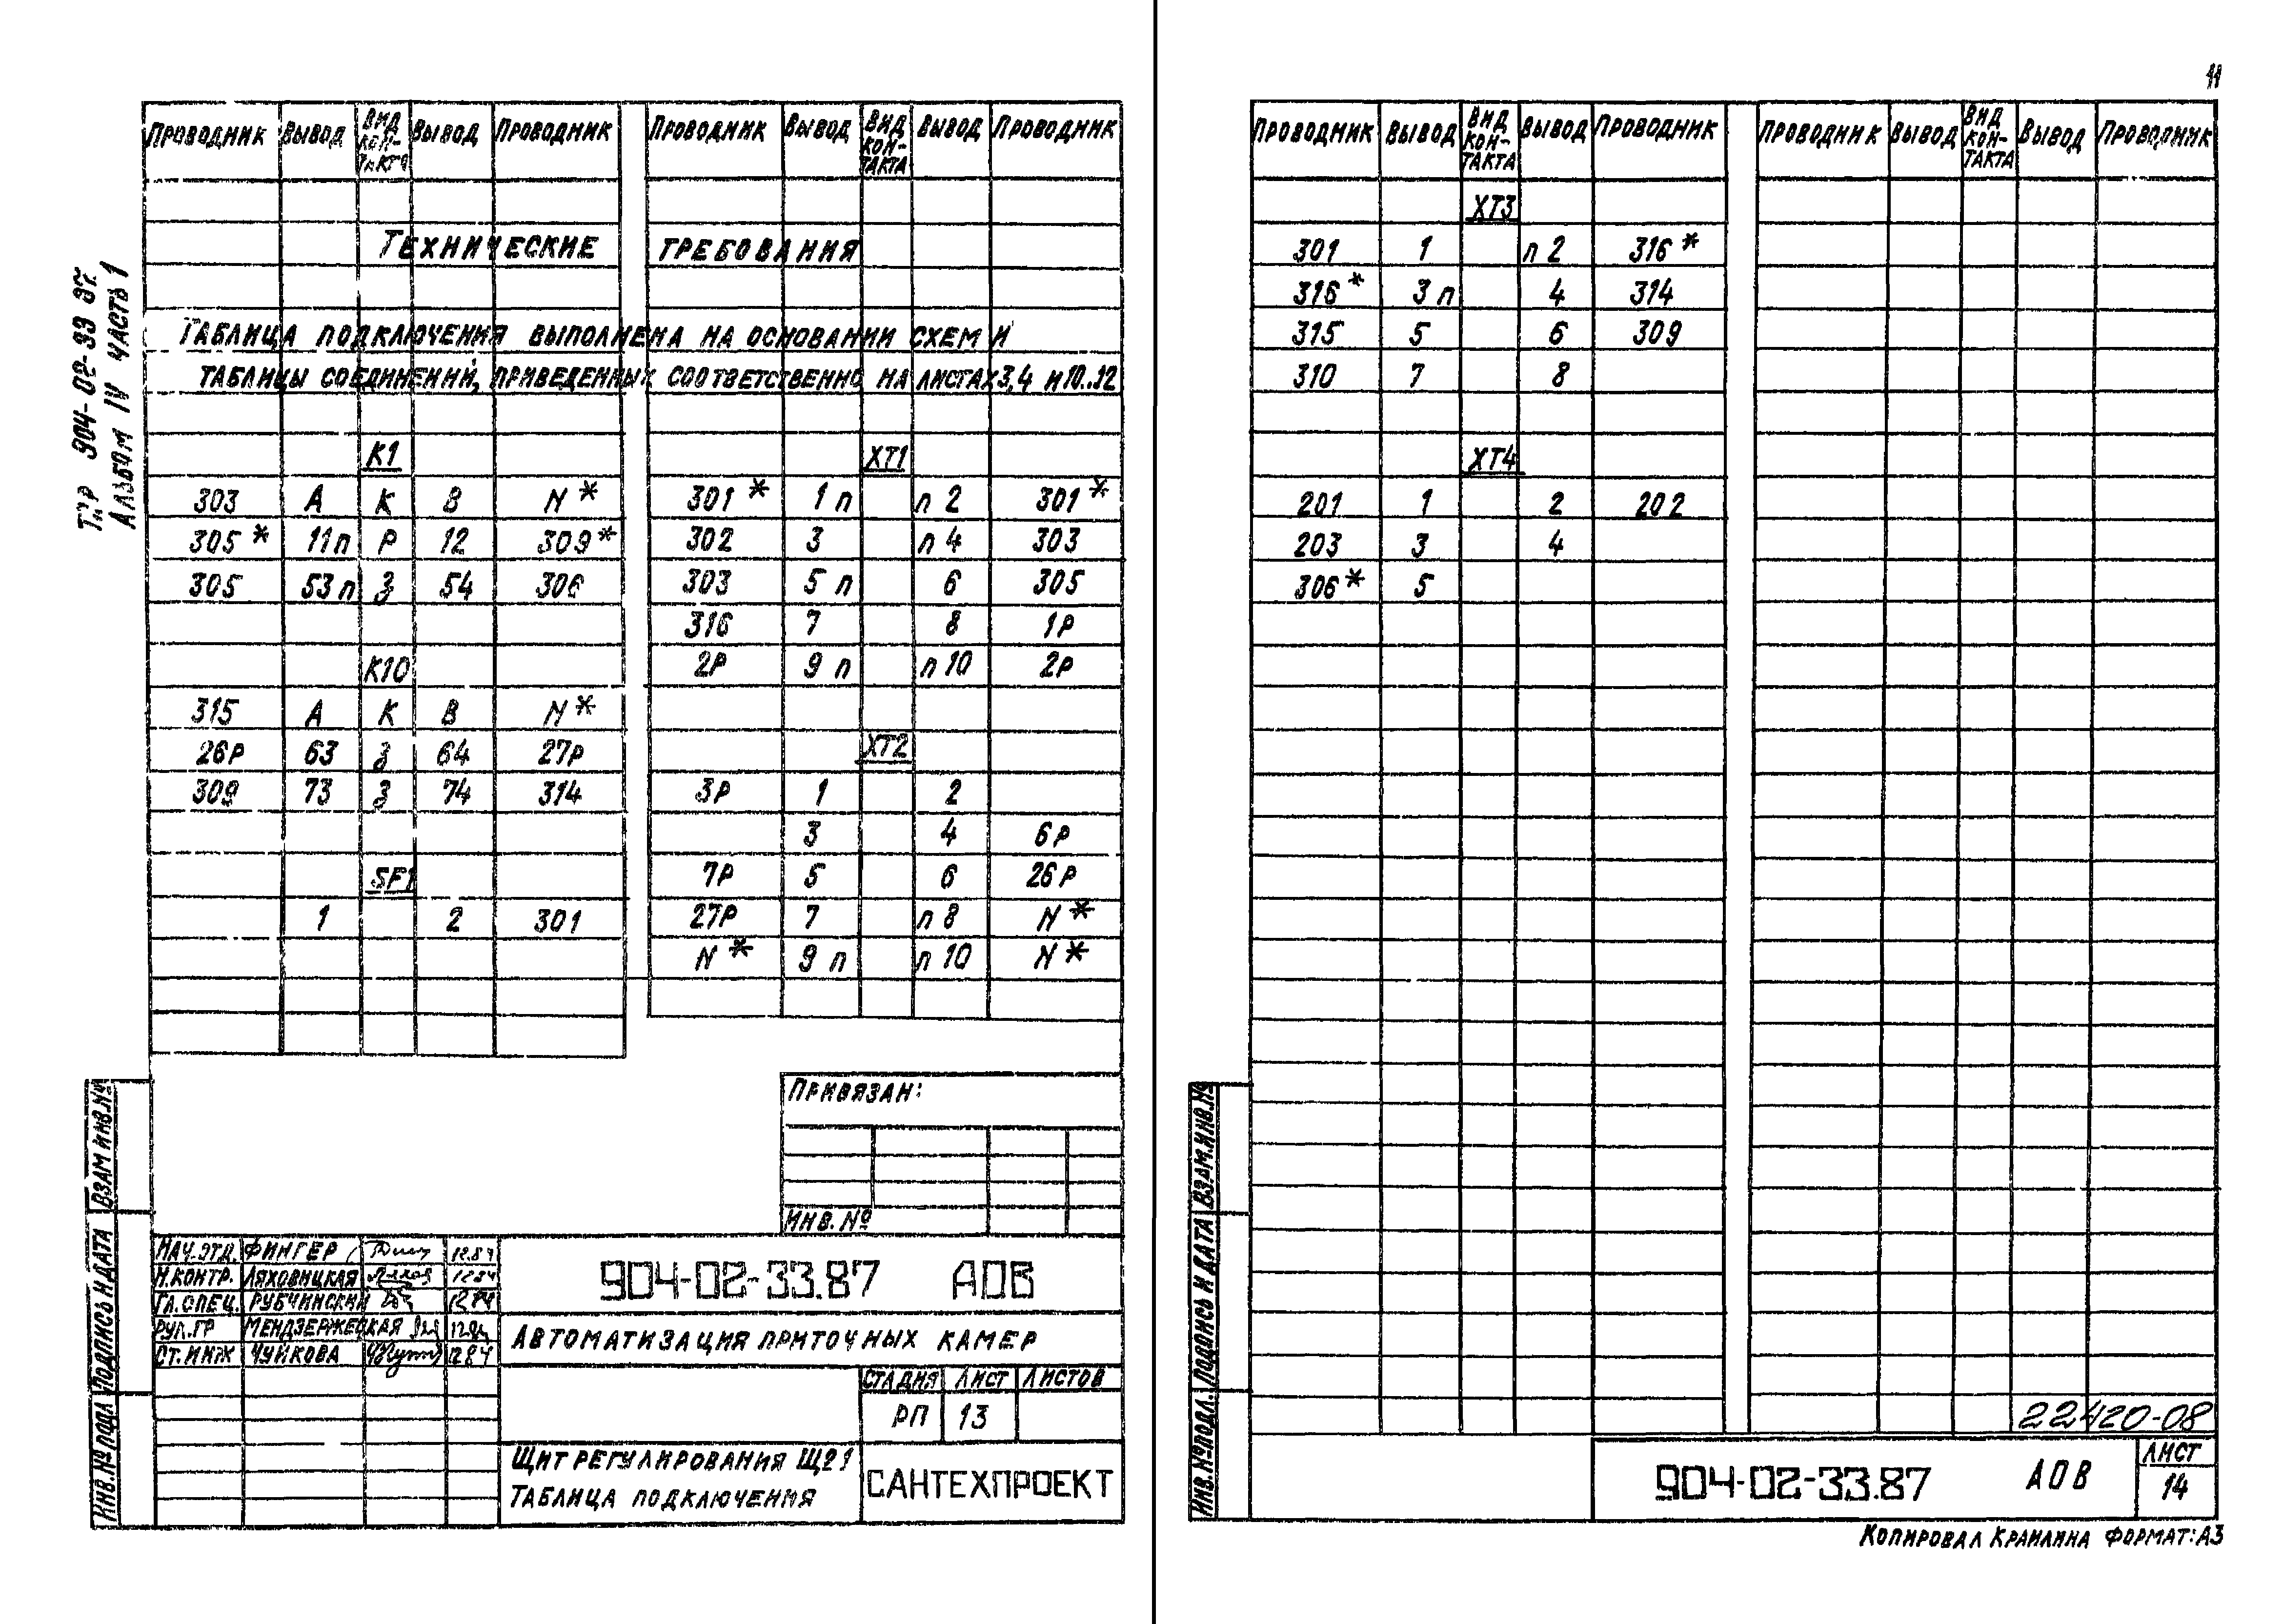 11
Т.Р 904-02-33.87
Альбом IV часть 1
Проводник Вывод Вид контакта Вывод Проводник Проводник Вывод Вид контакта Вывод Проводник
Технические требования
Таблица подключения выполнена на основании схем и
таблицы соединений, приведенных соответственно на листах 3,4 и 10..12
К1 ХТ1
303 А К В N* 301* 1 п п 2 301*
305* 11п Р 12 309* 302 3 п 4 303
305 53п З 54 306 303 5 п 6 305
316 7 8 1Р
К10 2Р 9 п п 10 2Р
315 А К В N*
26Р 63 З 64 27Р ХТ2
309 73 З 74 314 3Р 1 2
3 4 6Р
SF1 7Р 5 6 26Р
1 2 301 27Р 7 п 8 N*
N* 9 п п 10 N*
Привязан:
Инв. №
Взам инв. №
Подпись и дата
Инв. № подл
Нач. отд. Фингер 12.84
Н. контр. Ляховицкая 12 84
Гл. спец. Рубчинский 12 84
Рук. гр Мендзержецкая 12 84
Ст. инж Чуйкова 12 84
904-02-33.87 АОВ
Автоматизация приточных камер
Стадия Лист Листов
РП 13
Щит регулирования Щ21
Таблица подключения
САНТЕХПРОЕКТ
Проводник Вывод Вид контакта Вывод Проводник Проводник Вывод Вид контакта Вывод Проводник
ХТ3
301 1 п 2 316*
316* 3 п 4 314
315 5 6 309
310 7 8
ХТ4
201 1 2 202
203 3 4
306* 5
Взам. инв. №
Подпись и дата
Инв. № подл.
22420-08
904-02-33.87 АОВ
Лист
14
Копировал Краилина Формат: А3